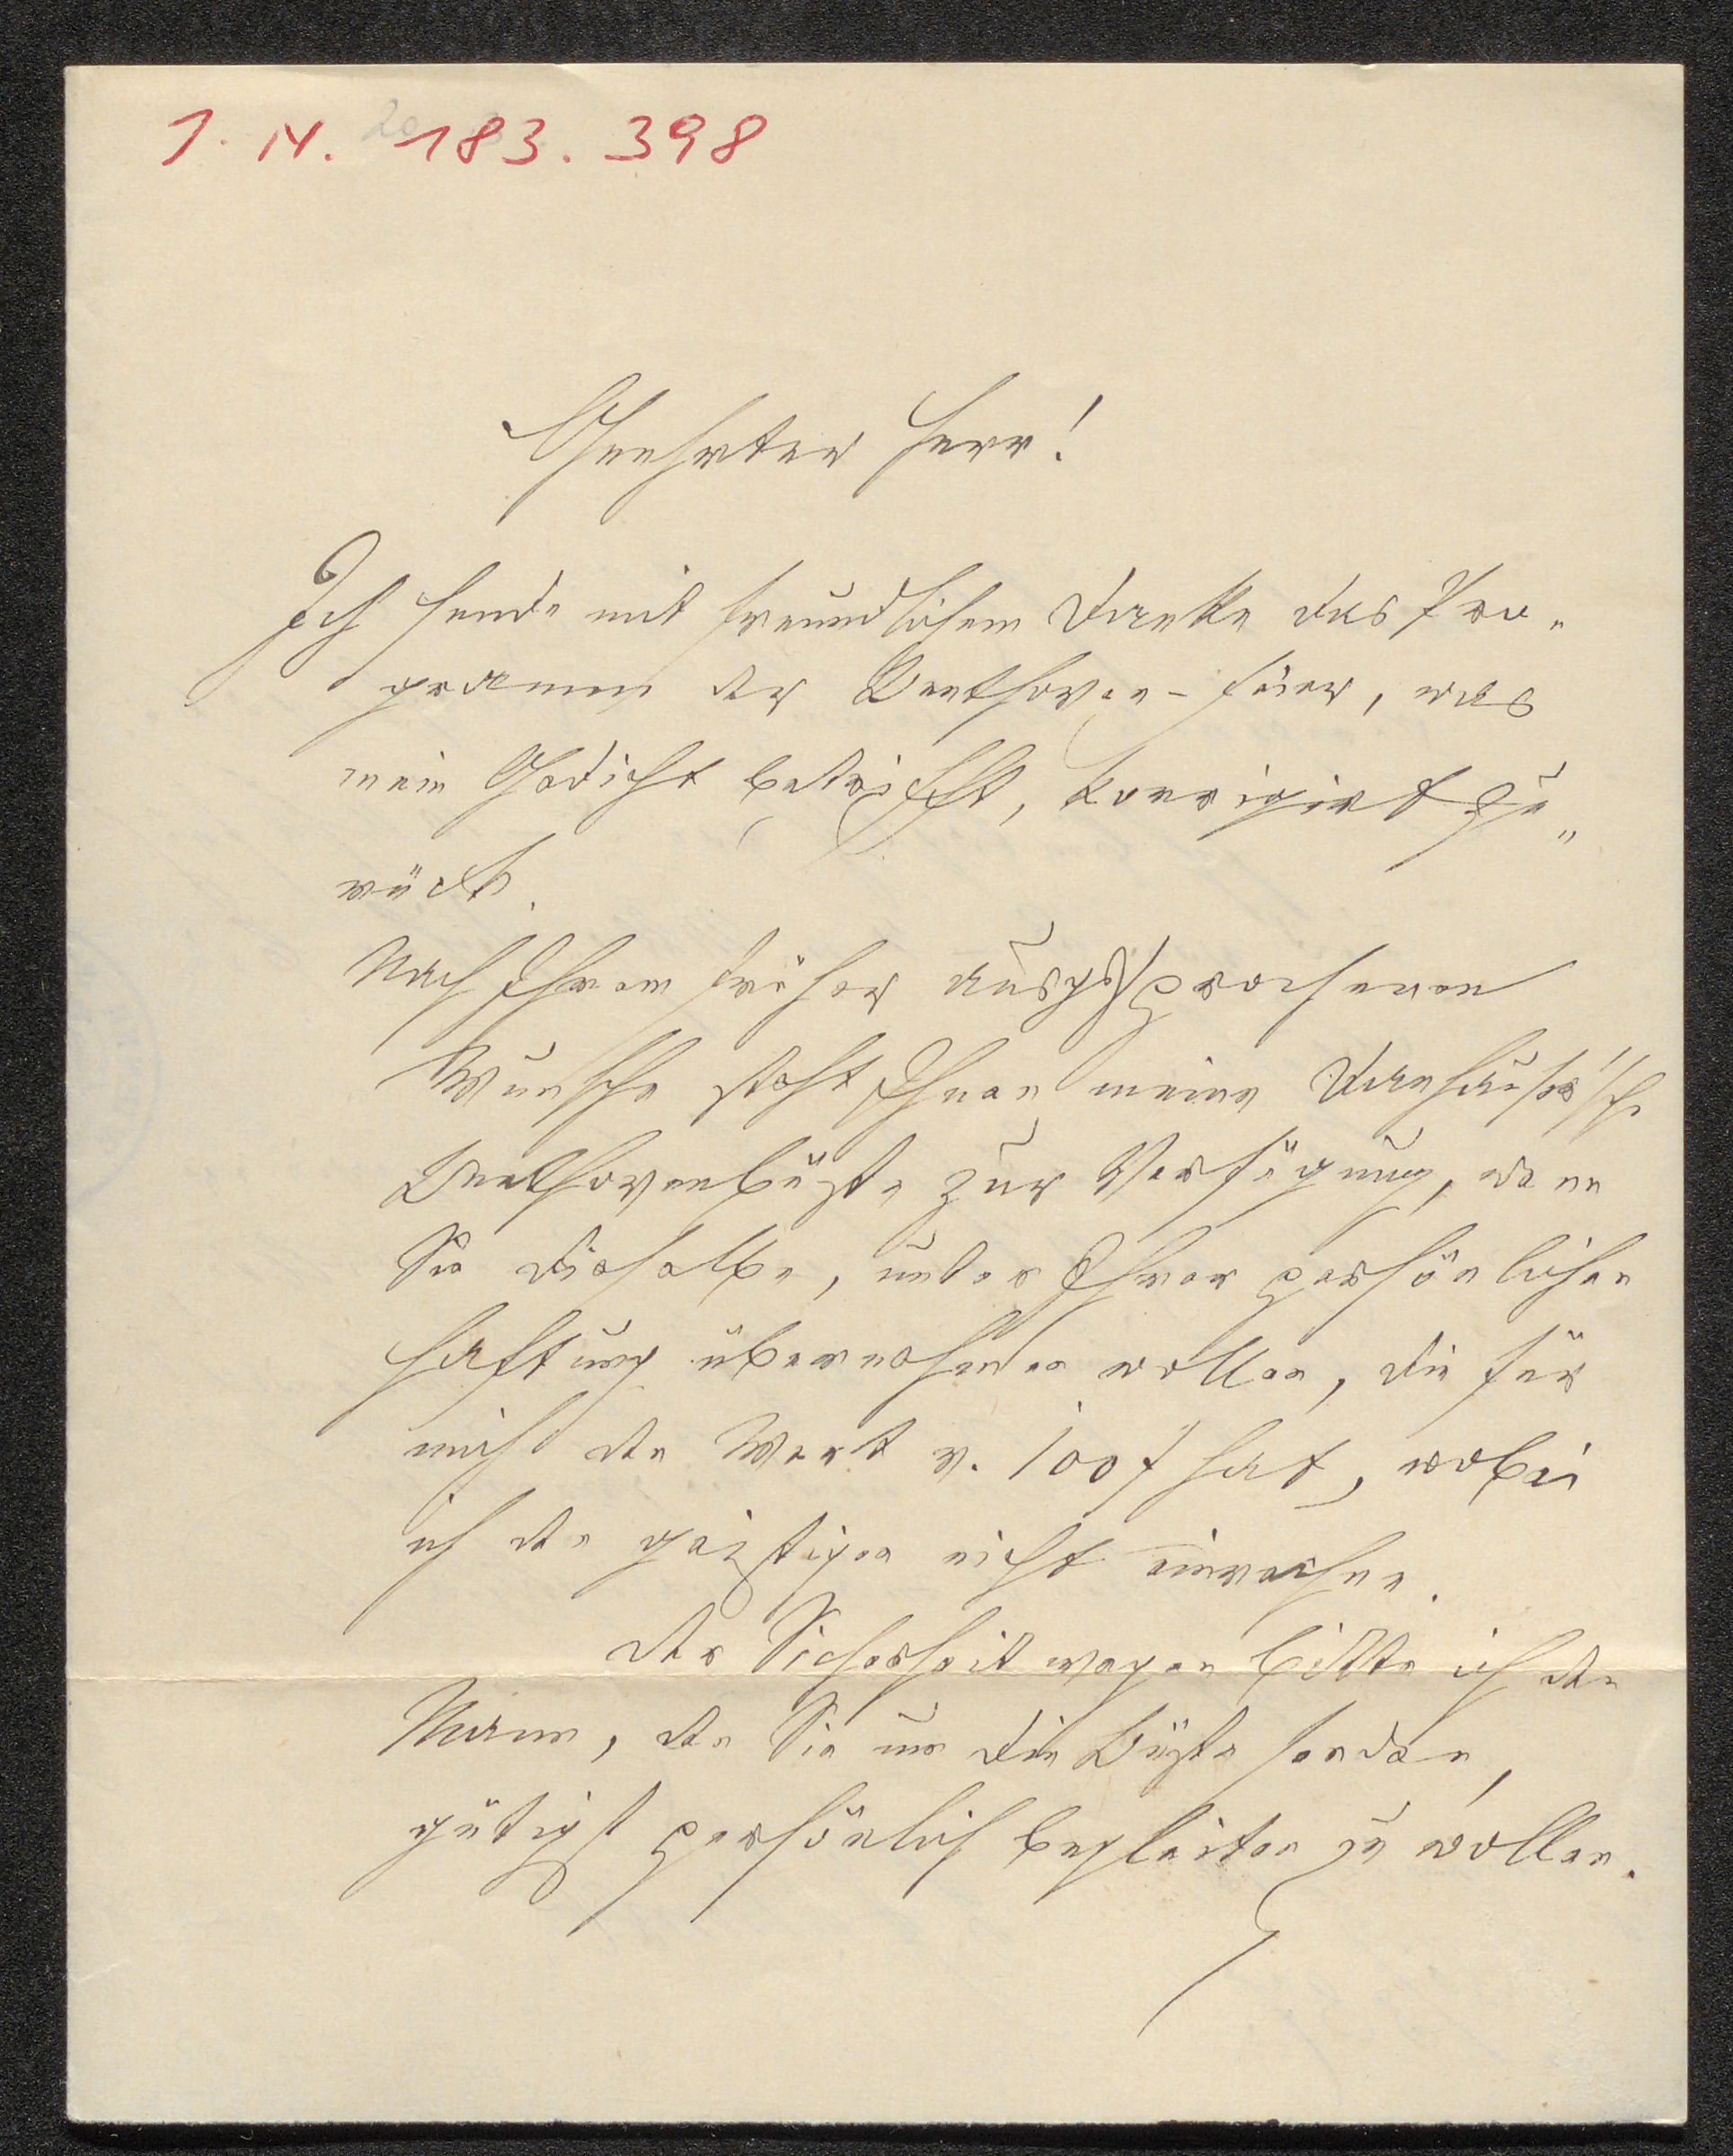 J. N. 183.398
Geehrter Herr!
Ich sende mit freundlichem Danke das Pro-
gramm der Beethoven-Feier, was
mein Gedicht betrifft, korrigirt zu-
rück.
Nach Ihrem früher ausgesprochenen
Wunsche steht Ihnen meine Danhauser'sche
Beethovenbüste zur Verfügung, wenn
Sie dieselbe, unter Ihrer persönlichen
Haftung übernehmen wollen, die für
mich den Wert v. 100 f hat, wobei
ich den geistigen nicht einrechne.
Der Sicherheit wegen bitte ich den
Mann, den Sie um die Büste senden,
gütigst persönlich begleiten zu wollen.